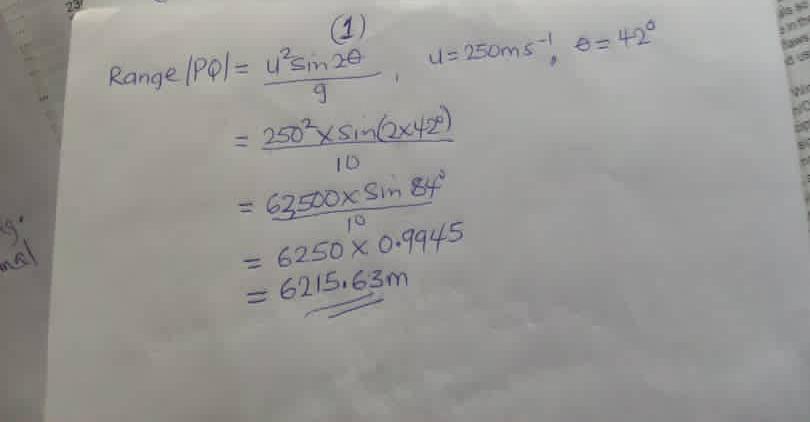 23
(1)
Range |PQ| = u²sin2θ / g , u=250ms⁻¹, θ=42°
= 250² × sin(2×42°) / 10
= 62500 × Sin 84° / 10
= 6250 × 0.9945
= 6215.63m